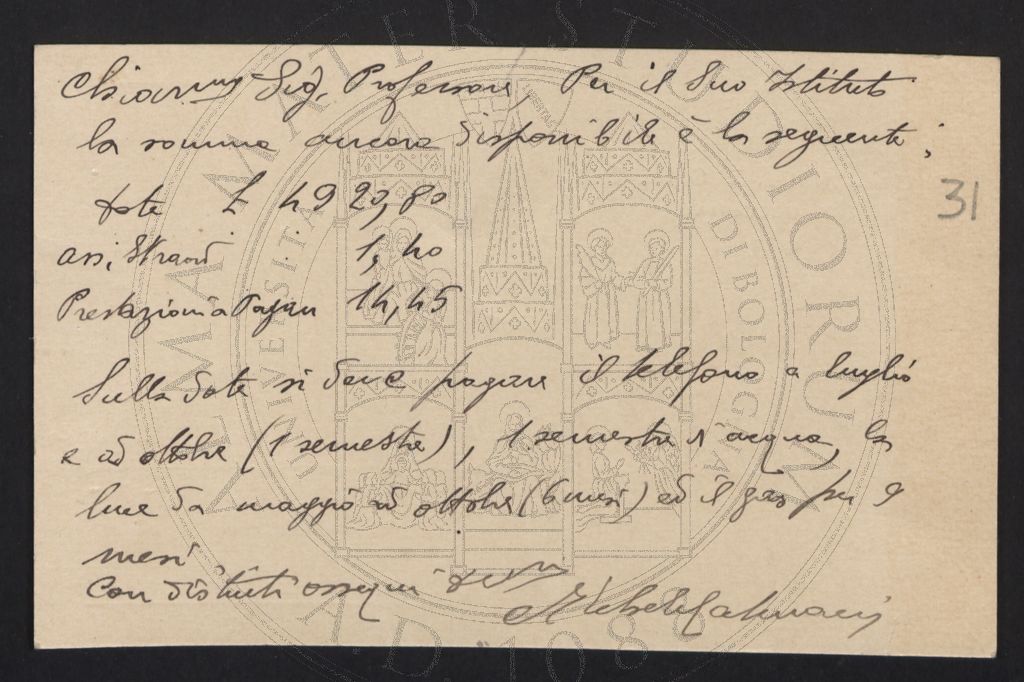 Chiar.mo Sig. Professore, Per il Suo Istituto
la somma ancora disponibile è la seguente:
31
dote L 4920,80
ass. straord. 1,40
Prestazioni a Pagam 14,45
Sulla dote si deve pagare il telefono a luglio
e ad ottobre (1 semestre), 1 semestre d'acqua, la
luce da maggio ad ottobre (6 mesi) ed il gas per 9
mesi
Con distinti ossequi
ALMA MATER STUDIORUM
UNIVERSITA DI BOLOGNA
A.D. 1088